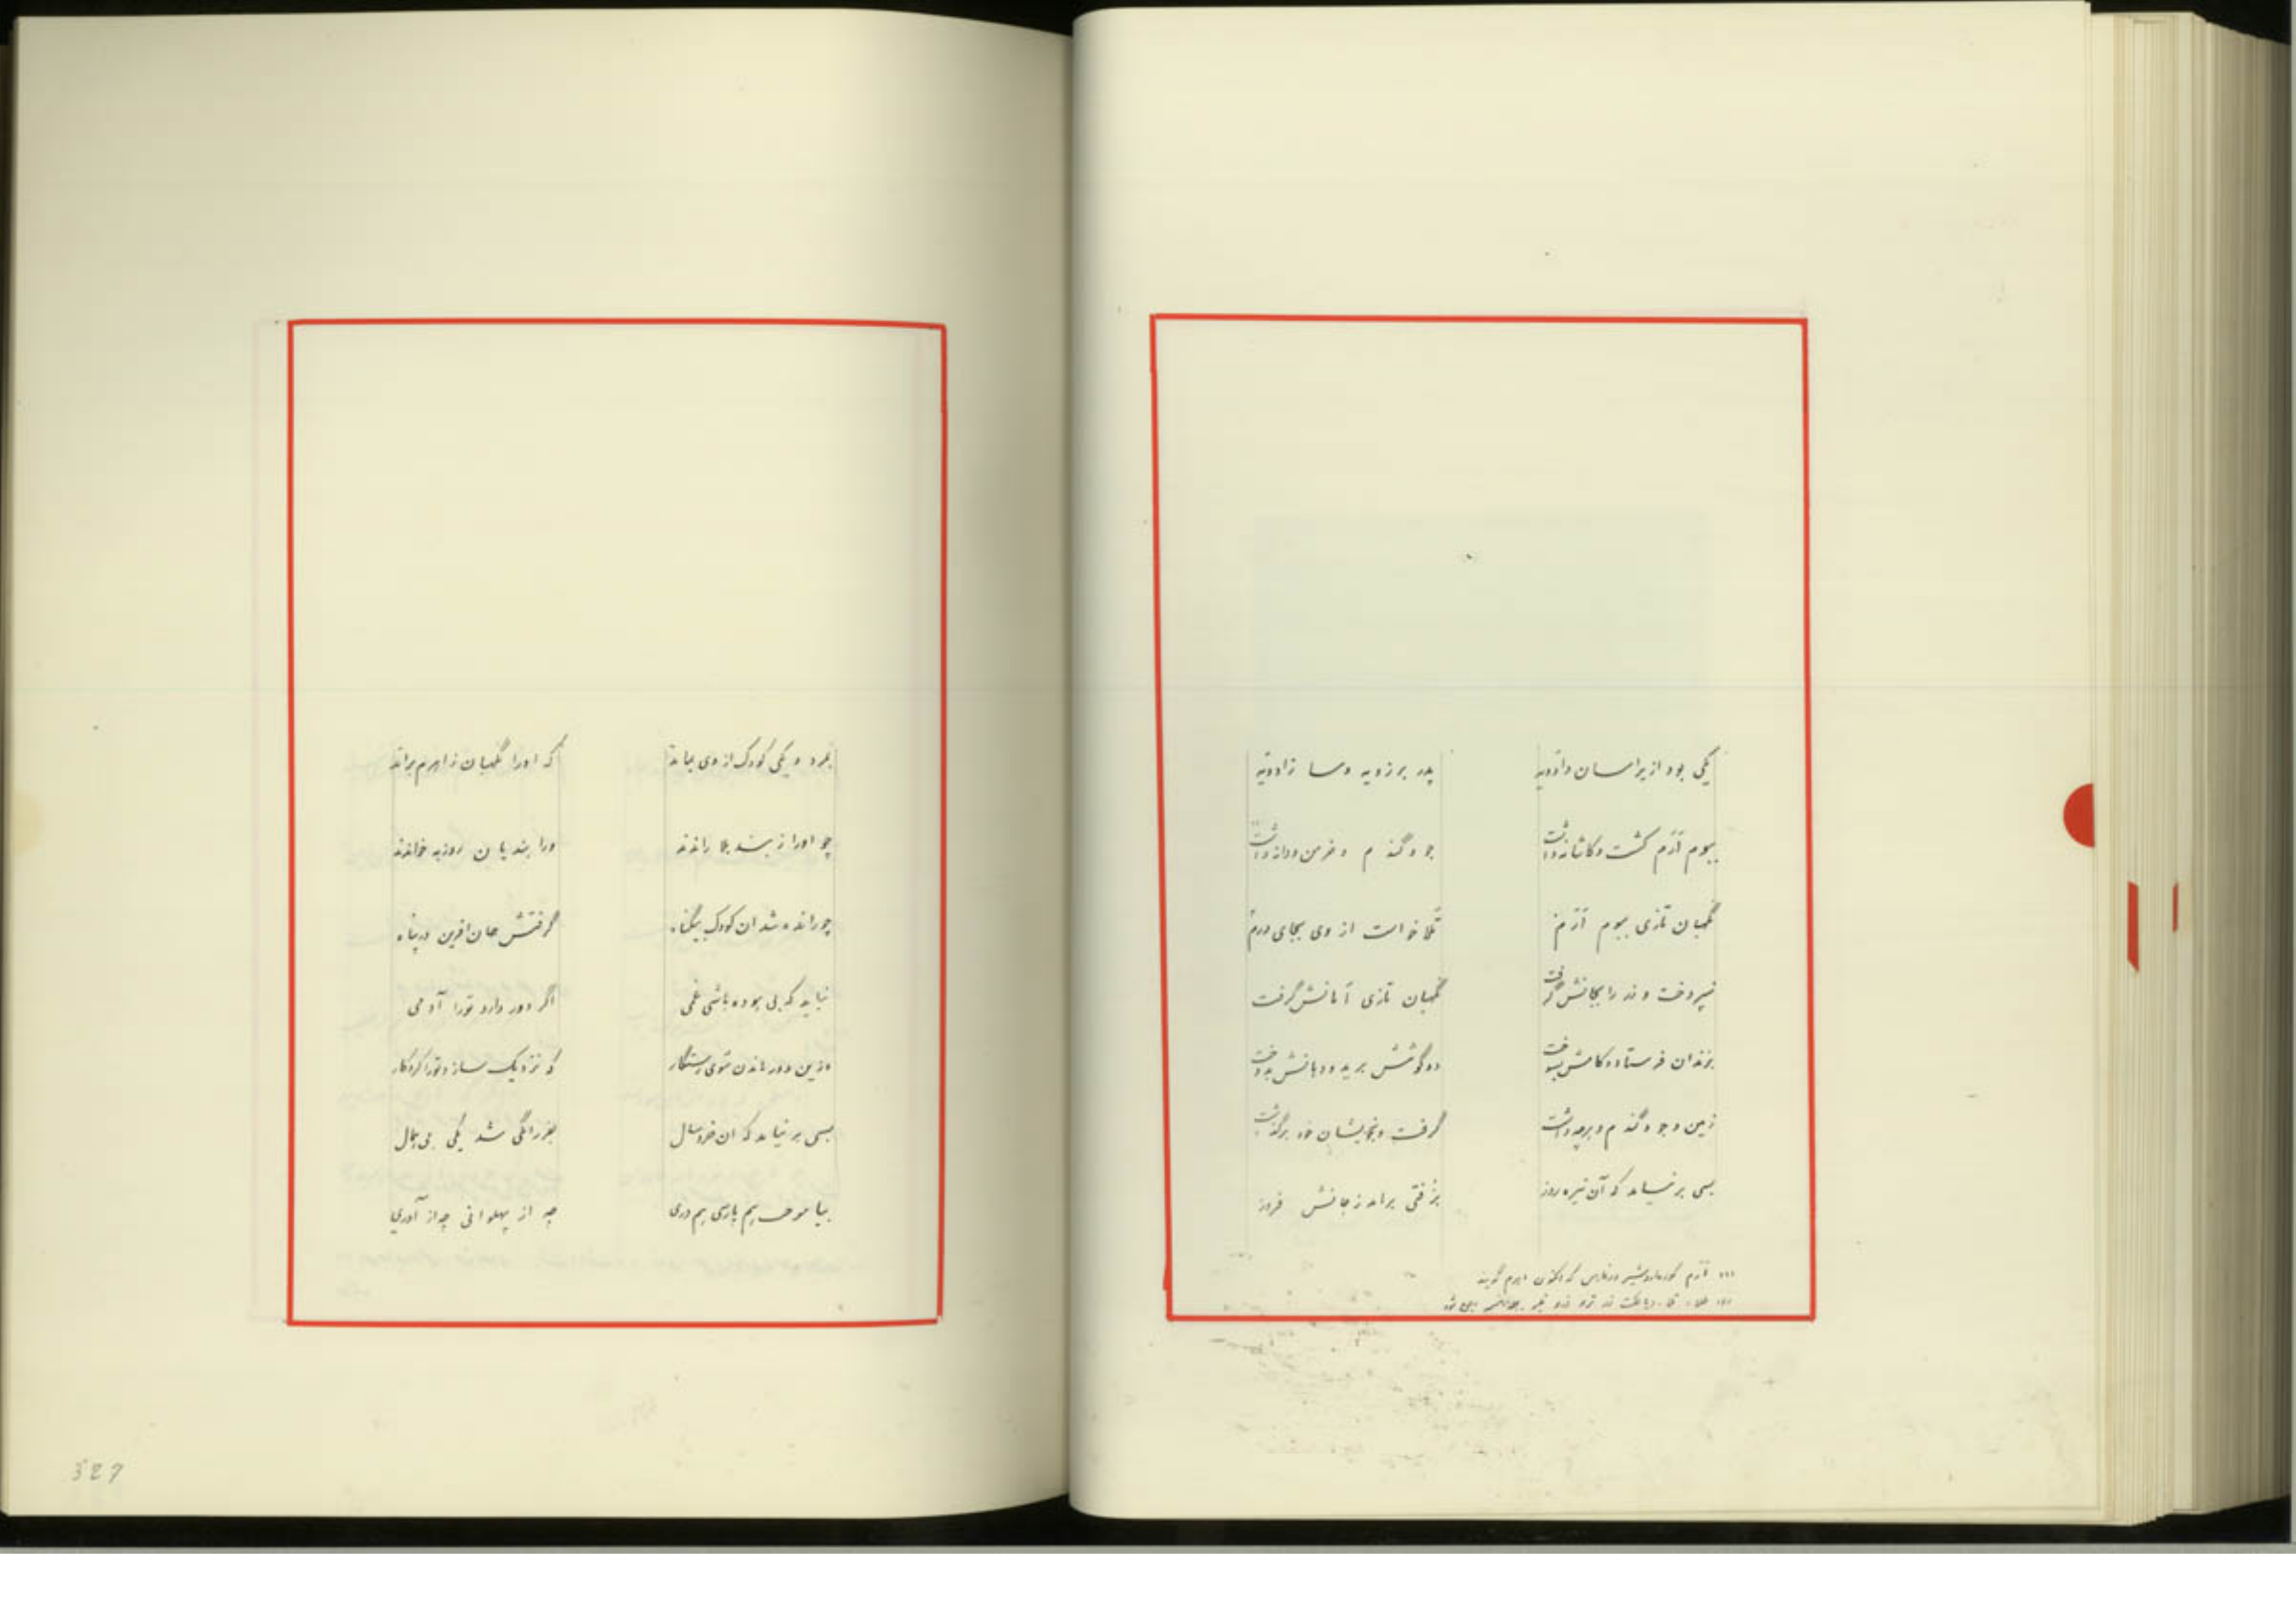 یکی بود از پیراسان دادویه    پدر برزویه و سا زادویه
ببوم اَرَم کشت و کاشانه داشت    جو و گندم و خرمن و دانه داشت
نگهبان تازی ببوم اَرَم    طلا خواست از وی بجای درم
نپردخت و زر رایگانش گرفت    نگهبان تازی امانش گرفت
بزندان فرستاد و کامش بسوخت    دو گوشش برید و دهانش بدوخت
زمین و جو و گندم و هرچه داشت    گرفت و بخویشان خود برگذاشت
بسی بر نیامد که آن تیره روز    بزفتی برآمد ز جانش فروز
اَرَم گویند
بمرد و یکی کودک از وی بماند    که او را نگهبان ز اهرم براند
چو او را ز بند بلا راندند    ورا بندیان روزبه خواندند
چو رانده شد آن کودک بیگناه    گرفتش جهان آفرین در پناه
نباید که بی بوده باشی غمی    اگر دور دارد تو را آدمی
وزین دور ماندن شوی رستگار    که نزدیک سازد تو را کردگار
بسی بر نیامد که آن خردسال    بفرزانگی شد یکی بی همال
بیاموخت هم پارسی هم دری    چه از پهلوانی چه از آذری
327